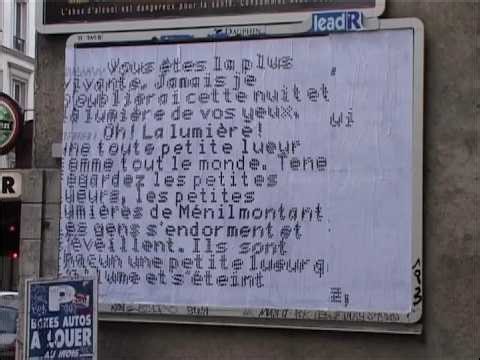 L'abus d'alcool est dangereux pour la santé. Consommez avec
DAUPHIN
leadR
Vous êtes la plus
vivante. Jamais je
n'oublierai cette nuit et
la lumière de vos yeux.
Oh! La lumière!
Une toute petite lueur
comme tout le monde. Tene
regardez les petites
lueurs, les petites
lumières de Ménilmontant
les gens s'endorment et
s'éveillent. Ils sont
chacun une petite lueur q
s'allume et s'éteint
,
ui
z,
193
R
P
BOXES AUTOS
A LOUER
AU MOIS